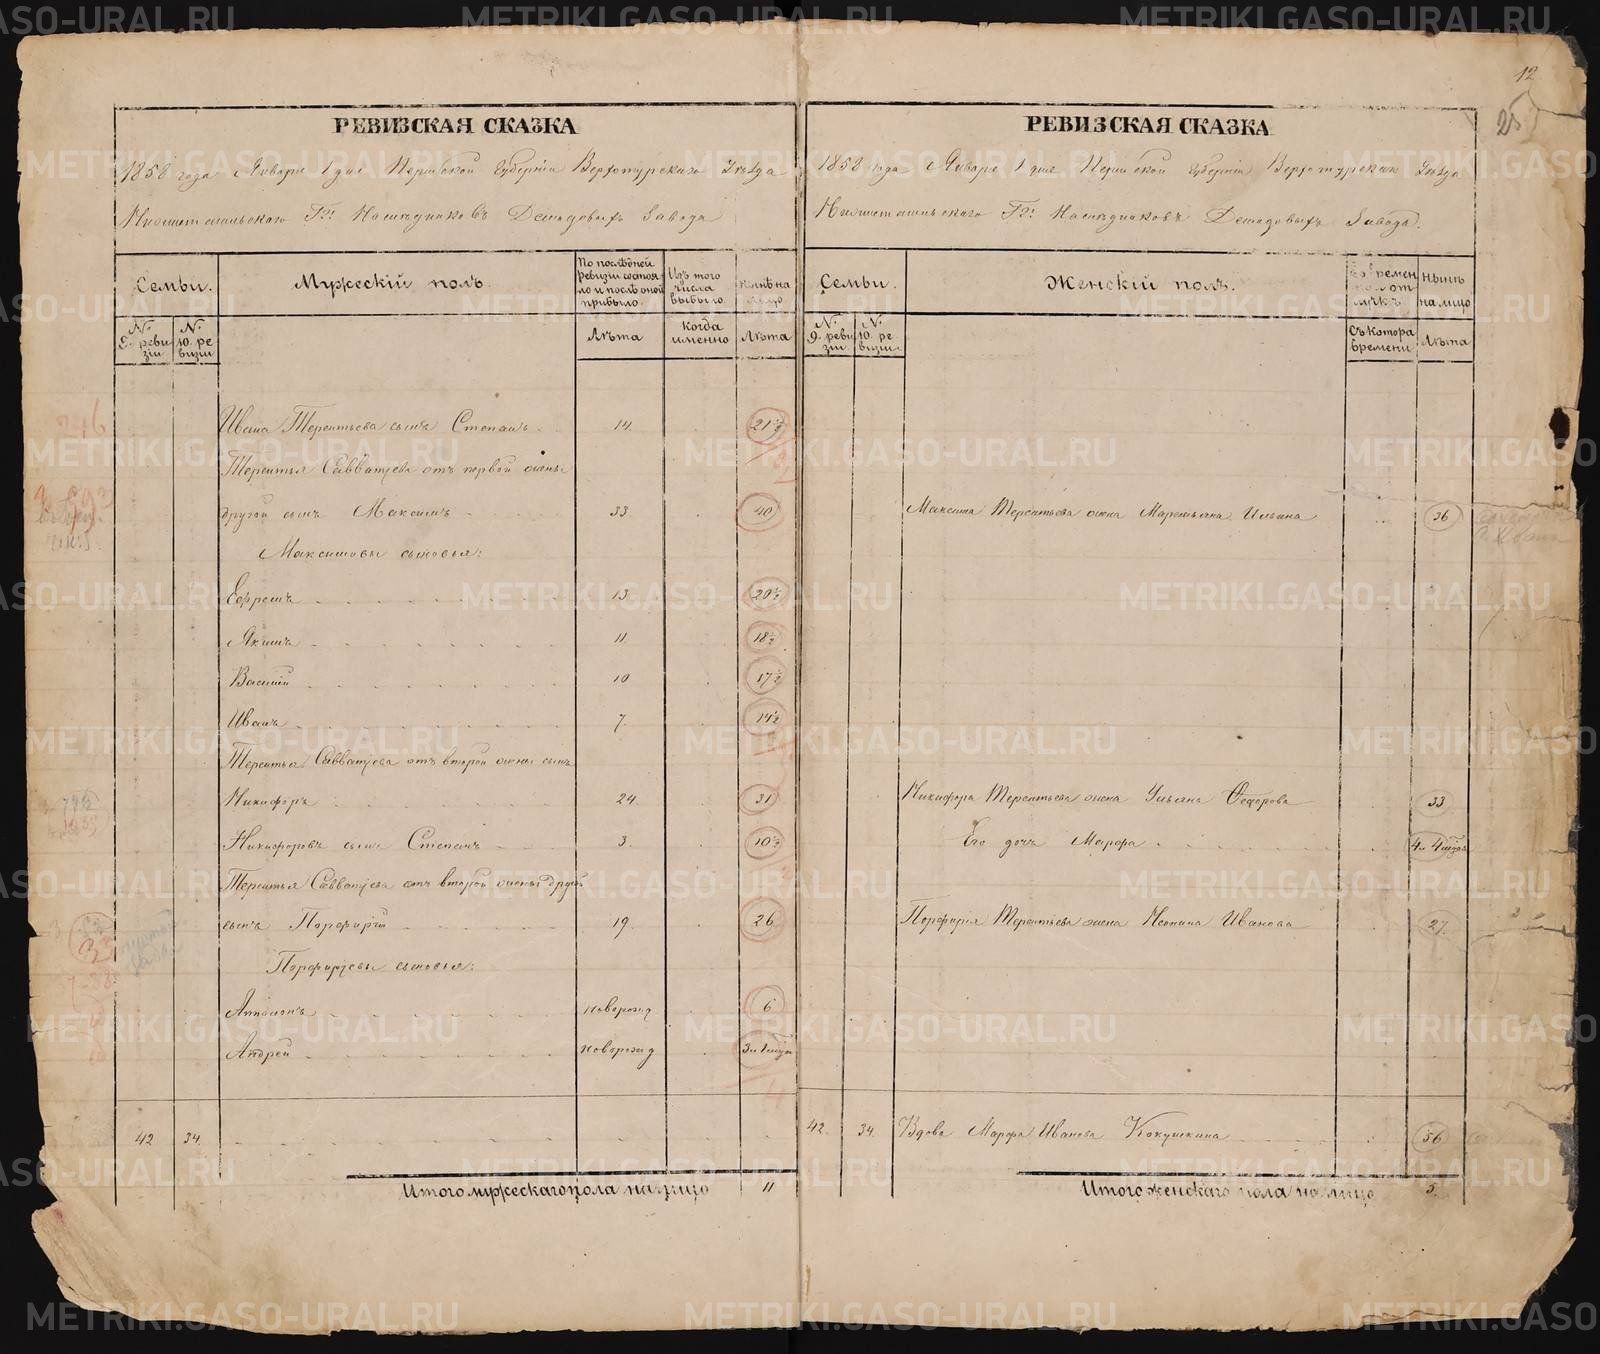 12
25
РЕВИЗСКАЯ СКАЗКА
1858 года Января 1 дня Пермской Губерніи Верхотурскаго Уѣзда
Нижнетагильскаго Гг: Наслѣдниковъ Демидовыхъ Завода
Семьи.
Мужескій полъ.
По послѣдней ревизіи состояло и послѣ оной прибыло.
Изъ того числа выбыло
Нынѣ на лицо
№ 9. ревизіи
№ 10. ревизіи
Лѣта
Когда именно
Лѣта
Ивана Терентьева сынъ Степанъ 14. 21½
Терентья Савватѣева отъ первой жены
другой сынъ Максимъ 33. 40
Максимовы сыновья:
Ефремъ 13. 20½
Якимъ 11 18½
Василій 10 17½
Иванъ 7. 14½
Терентья Савватѣева отъ второй жены сынъ
Никифоръ 24. 31
Никифоровъ сынъ Степанъ 3. 10½
Терентья Савватѣева отъ второй жены другой
сынъ Порфирій 19. 26
Порфирьевы сыновья:
новорожд 6
Андрей новорожд
42 34.
Итого мужескаго пола на лицо 11
РЕВИЗСКАЯ СКАЗКА
1858 года Января 1 дня Пермской Губерніи Верхотурскаго Уѣзда
Нижнетагильскаго Гг: Наслѣдниковъ Демидовыхъ Завода.
Семьи.
Женскій полъ.
Во временной отлучкѣ
Нынѣ на лицо
№ 9. ревизіи
№ 10. ревизіи
Съ котора времени
Лѣта
Максима Терентьева жена Маремьяна Ильина 36
Никифора Терентьева жена Ульяна Федорова 33
Его дочь Марфа
Порфирія Терентьева жена Иванова 27.
42. 34. Вдова Марфа Иванова Кокушкина 56
Итого женскаго пола на лицо 5.
METRIKI.GASO-URAL.RU